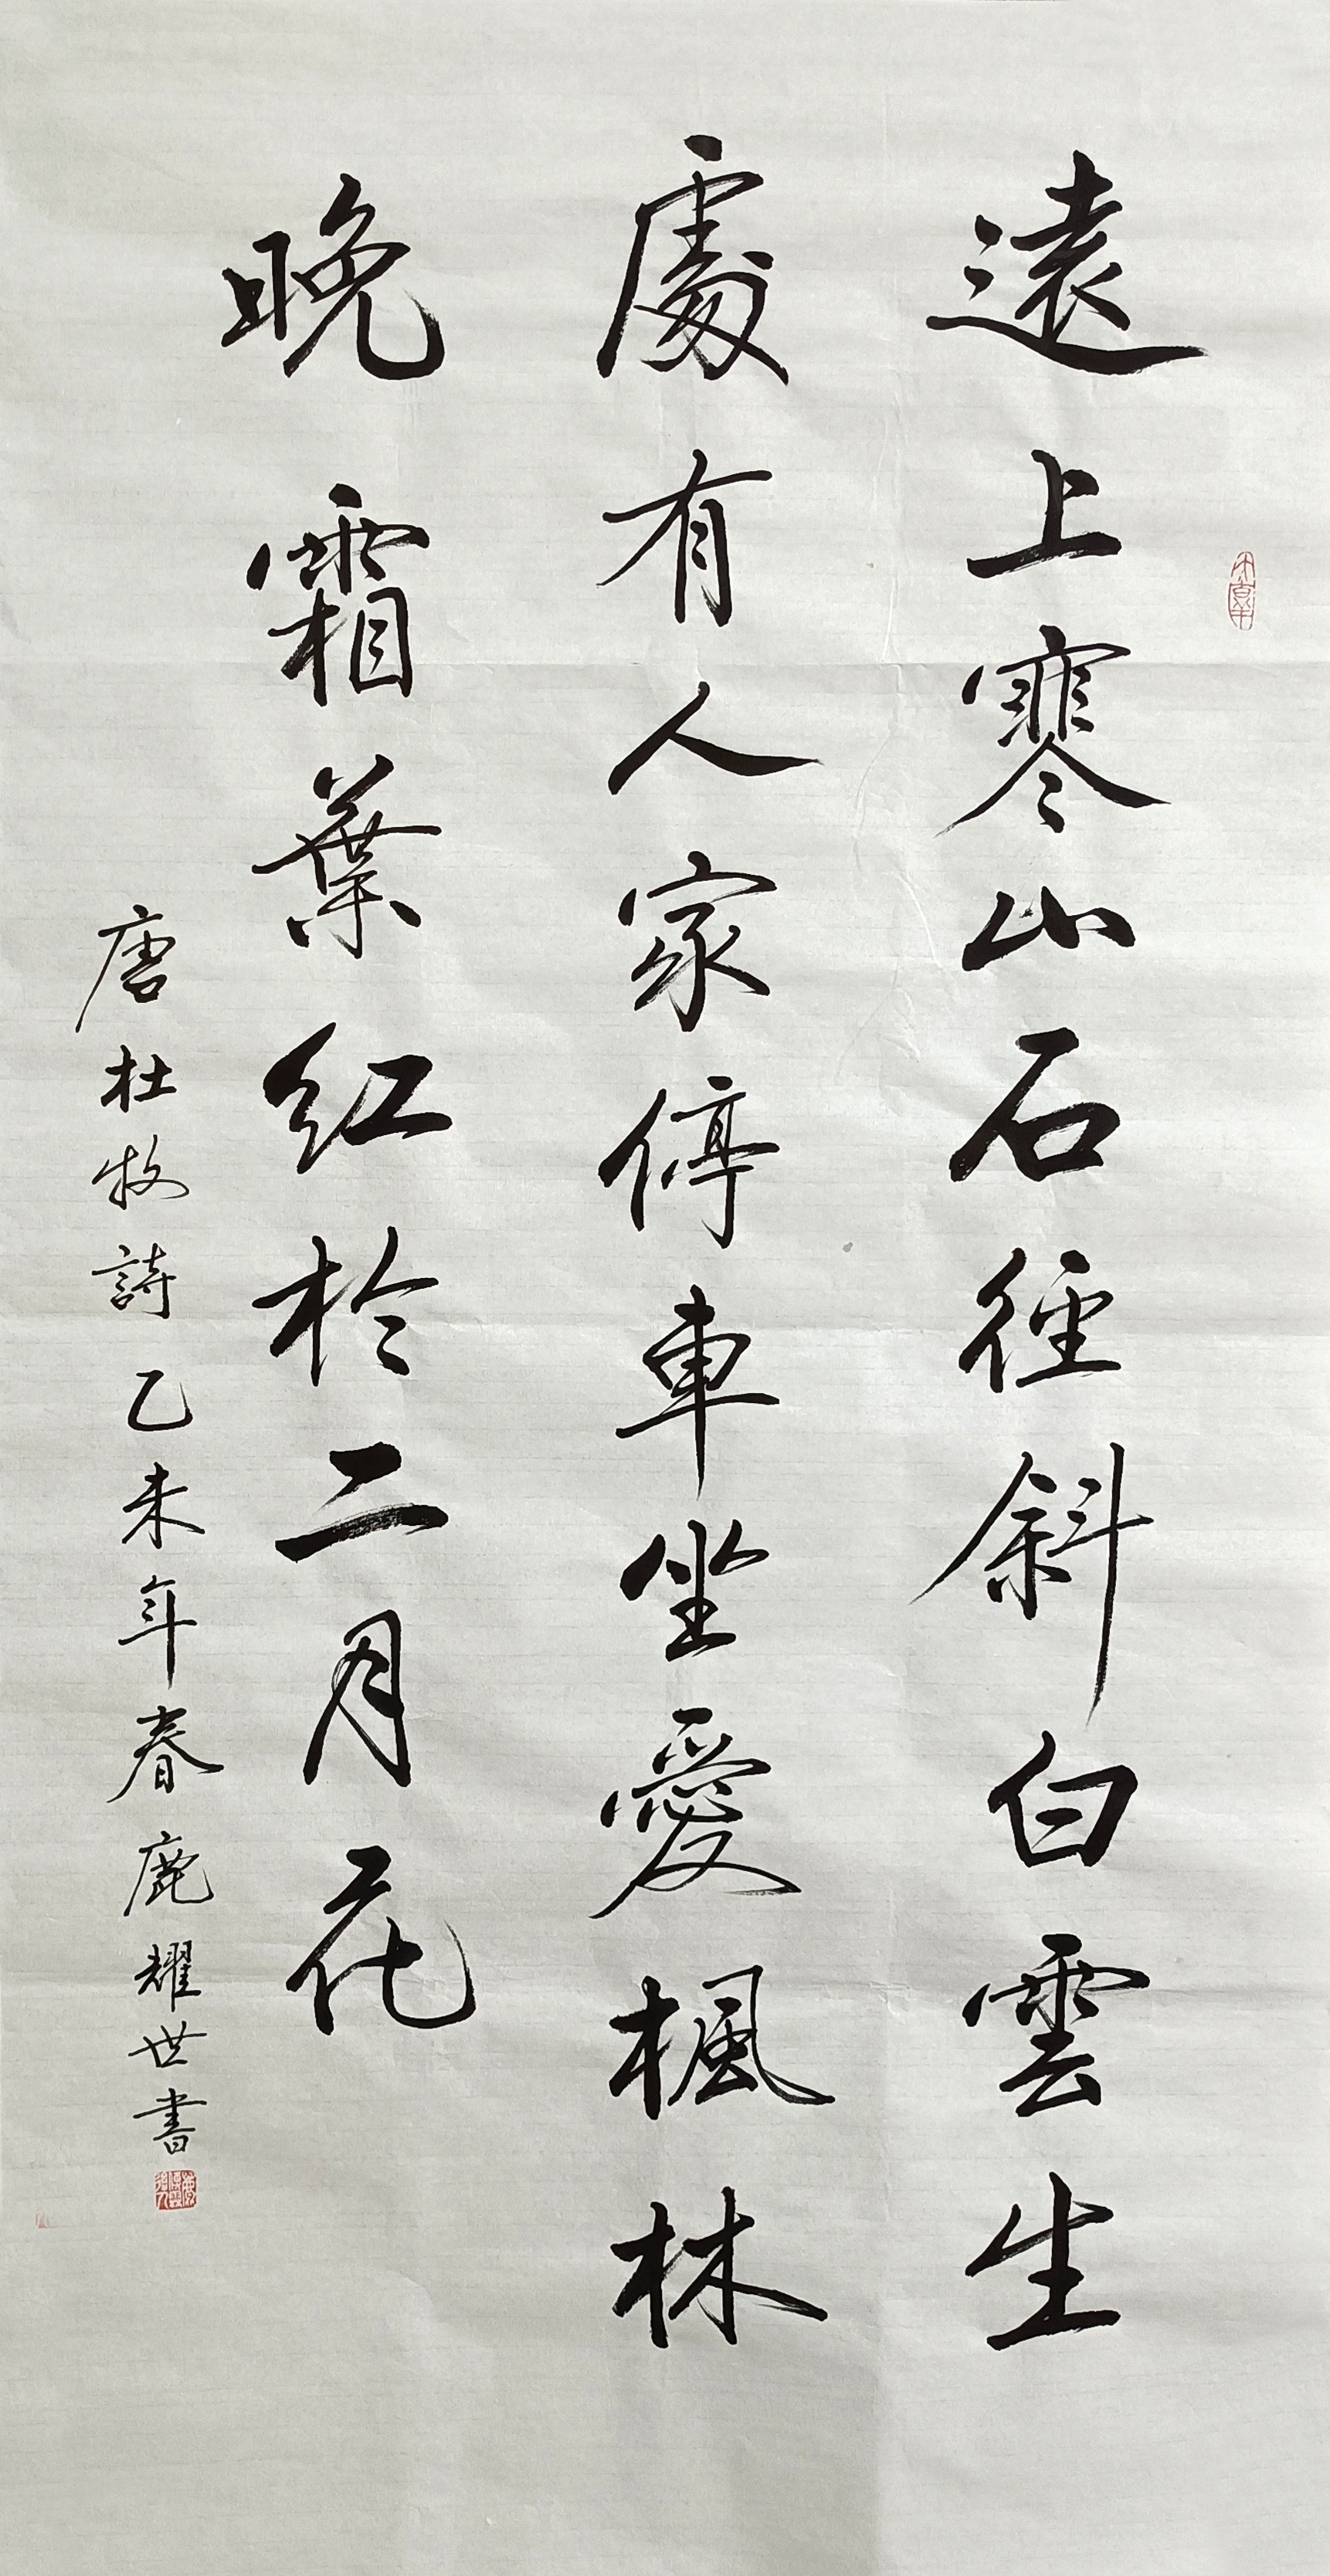 遠上寒山石徑斜白雲生
處有人家停車坐愛楓林
晚霜葉紅於二月花
唐杜牧詩乙未年春鹿耀世書